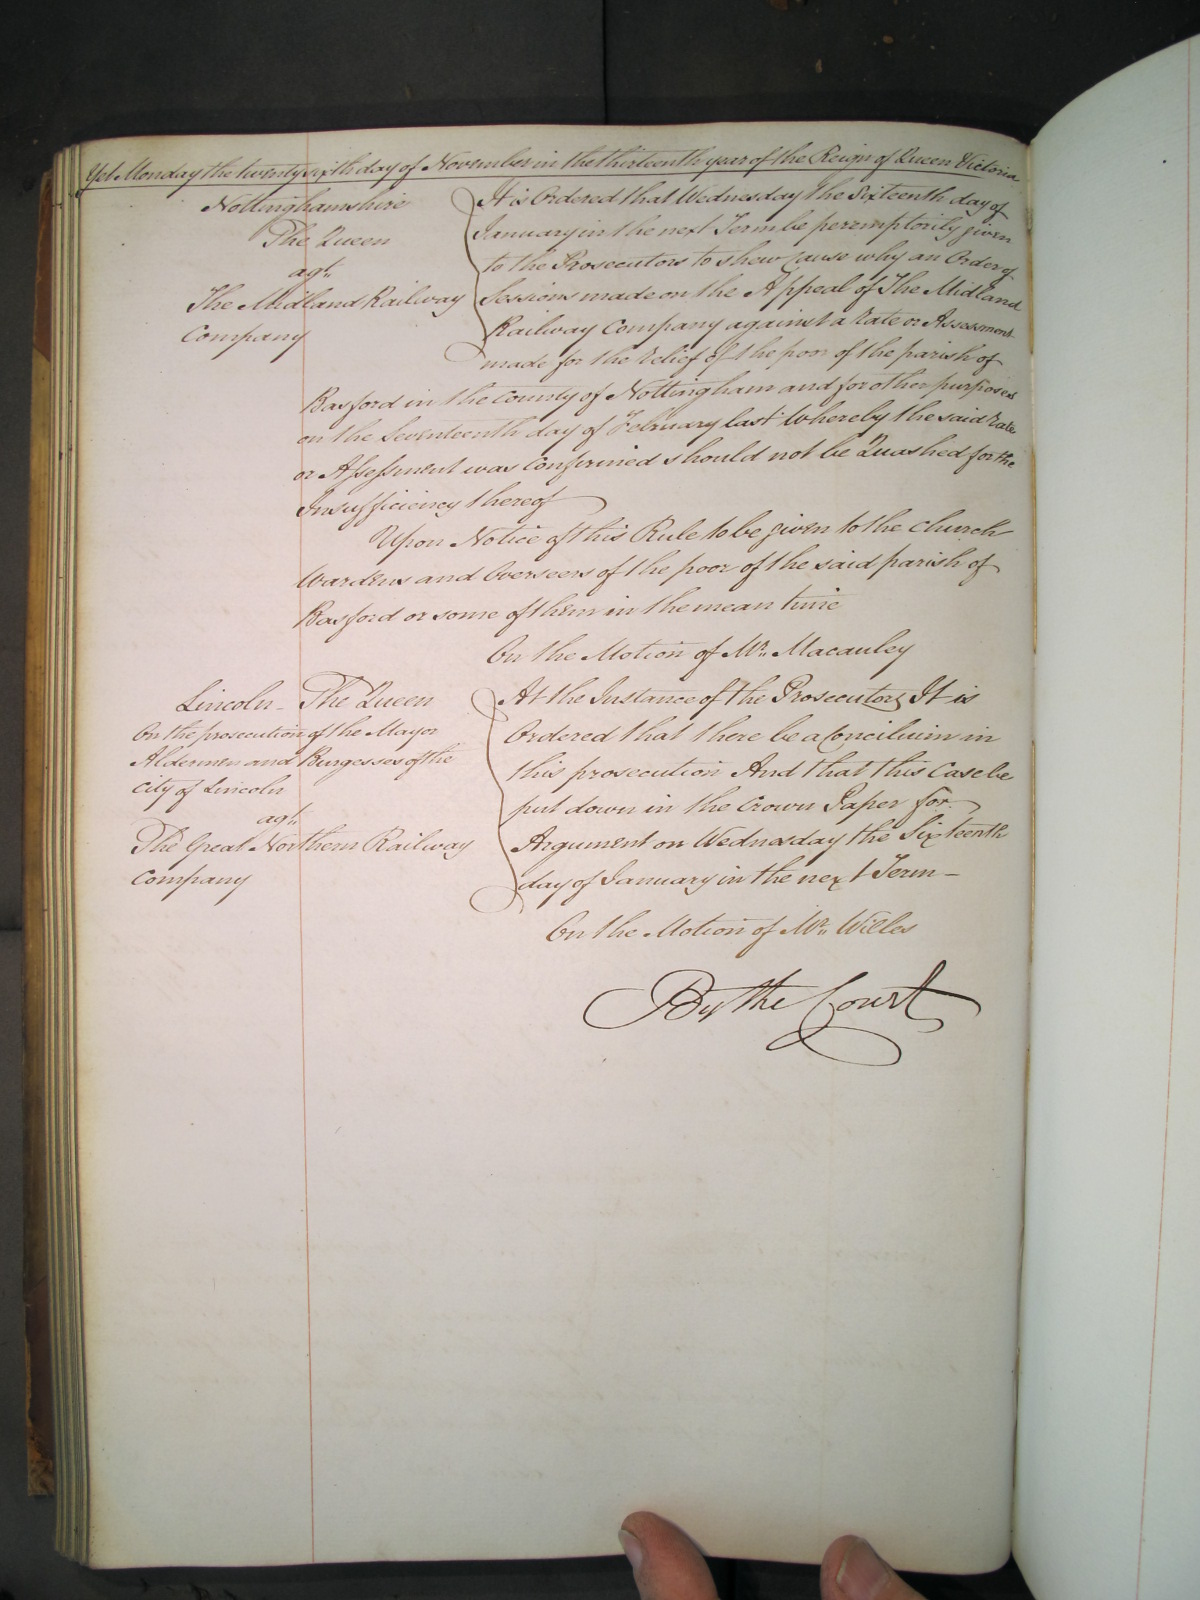 Yet Monday the twenty sixth day of November in the thirteenth year of the Reign of Queen Victoria
Nottinghamshire
The Queen
agt.
The Midland Railway
Company
It is Ordered that Wednesday the Sixteenth day of
January in the next Term be peremptorily given
to the Prosecutors to shew cause why an Order of
Sessions made on the Appeal of The Midland
Railway Company against a Rate or Assessment
made for the relief of the poor of the parish of
Basford in the County of Nottingham and for other purposes
on the Seventeenth day of February last Whereby the said Rate
or Assessment was confirmed should not be Quashed for the
Insufficiency thereof
Upon Notice of this Rule to be given to the Church
Wardens and Overseers of the poor of the said parish of
Basford or some of them in the mean time
On the Motion of Mr. Macauley
Lincoln - The Queen
On the prosecution of the Mayor
Aldermen and Burgesses of the
City of Lincoln
agt.
The Great Northern Railway
Company
At the Instance of the Prosecutors It is
Ordered that there be a Concilium in
this prosecution And that this Case be
put down in the Crown Paper for
Argument on Wednesday the Sixteenth
day of January in the next Term -
On the Motion of Mr. Willes
By the Court